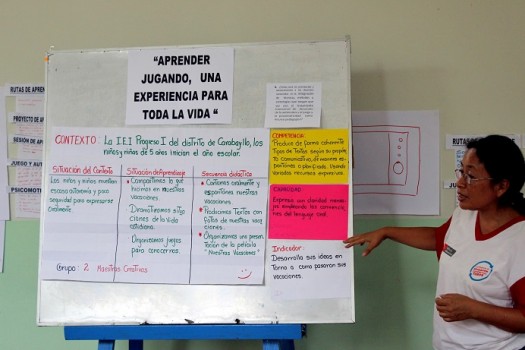 "APRENDER
JUGANDO, UNA
EXPERIENCIA PARA
TODA LA VIDA"
RUTAS DE
PROYECTO DE
JUEGO Y
PSICOMOT
CONTEXTO: La I.E.I Progreso I del distrito de Carabayllo, los
niños y niñas de 5 años inician el año escolar.
Situación del Contexto
Los niños y niñas muestran
escasa autonomía y poca
seguridad para expresarse
oralmente.
Situación de Aprendizaje
Compartimos lo que
hicimos en nuestras
vacaciones.
Dramaticemos situa
ciones de la vida
cotidiana.
Organizamos juegos
para conocernos.
Secuencia didáctica
Contamos oralmente y
espontánea nuestras
vacaciones.
Producimos Textos con
fotos de nuestras vaca
ciones.
Organizamos una presen
tación de la película
"Nuestras Vacaciones"
Grupo: 2 Maestras Creativas
COMPETENCIA
Produce de forma coherente
Tipos de Textos según su propósi
to comunicativo, de manera es
pontánea o planificada. Usando
variados recursos expresivos.
CAPACIDAD
Expresa con claridad mensa
jes empleando las convencio
nes del lenguaje oral.
Indicador:
Desarrolla sus ideas en
Torno a como pasaron sus
vacaciones.
RUTAS DE